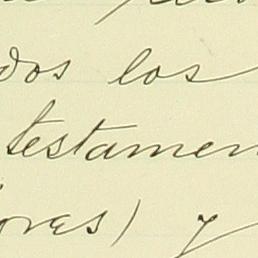 dos los
testamen
oras) y